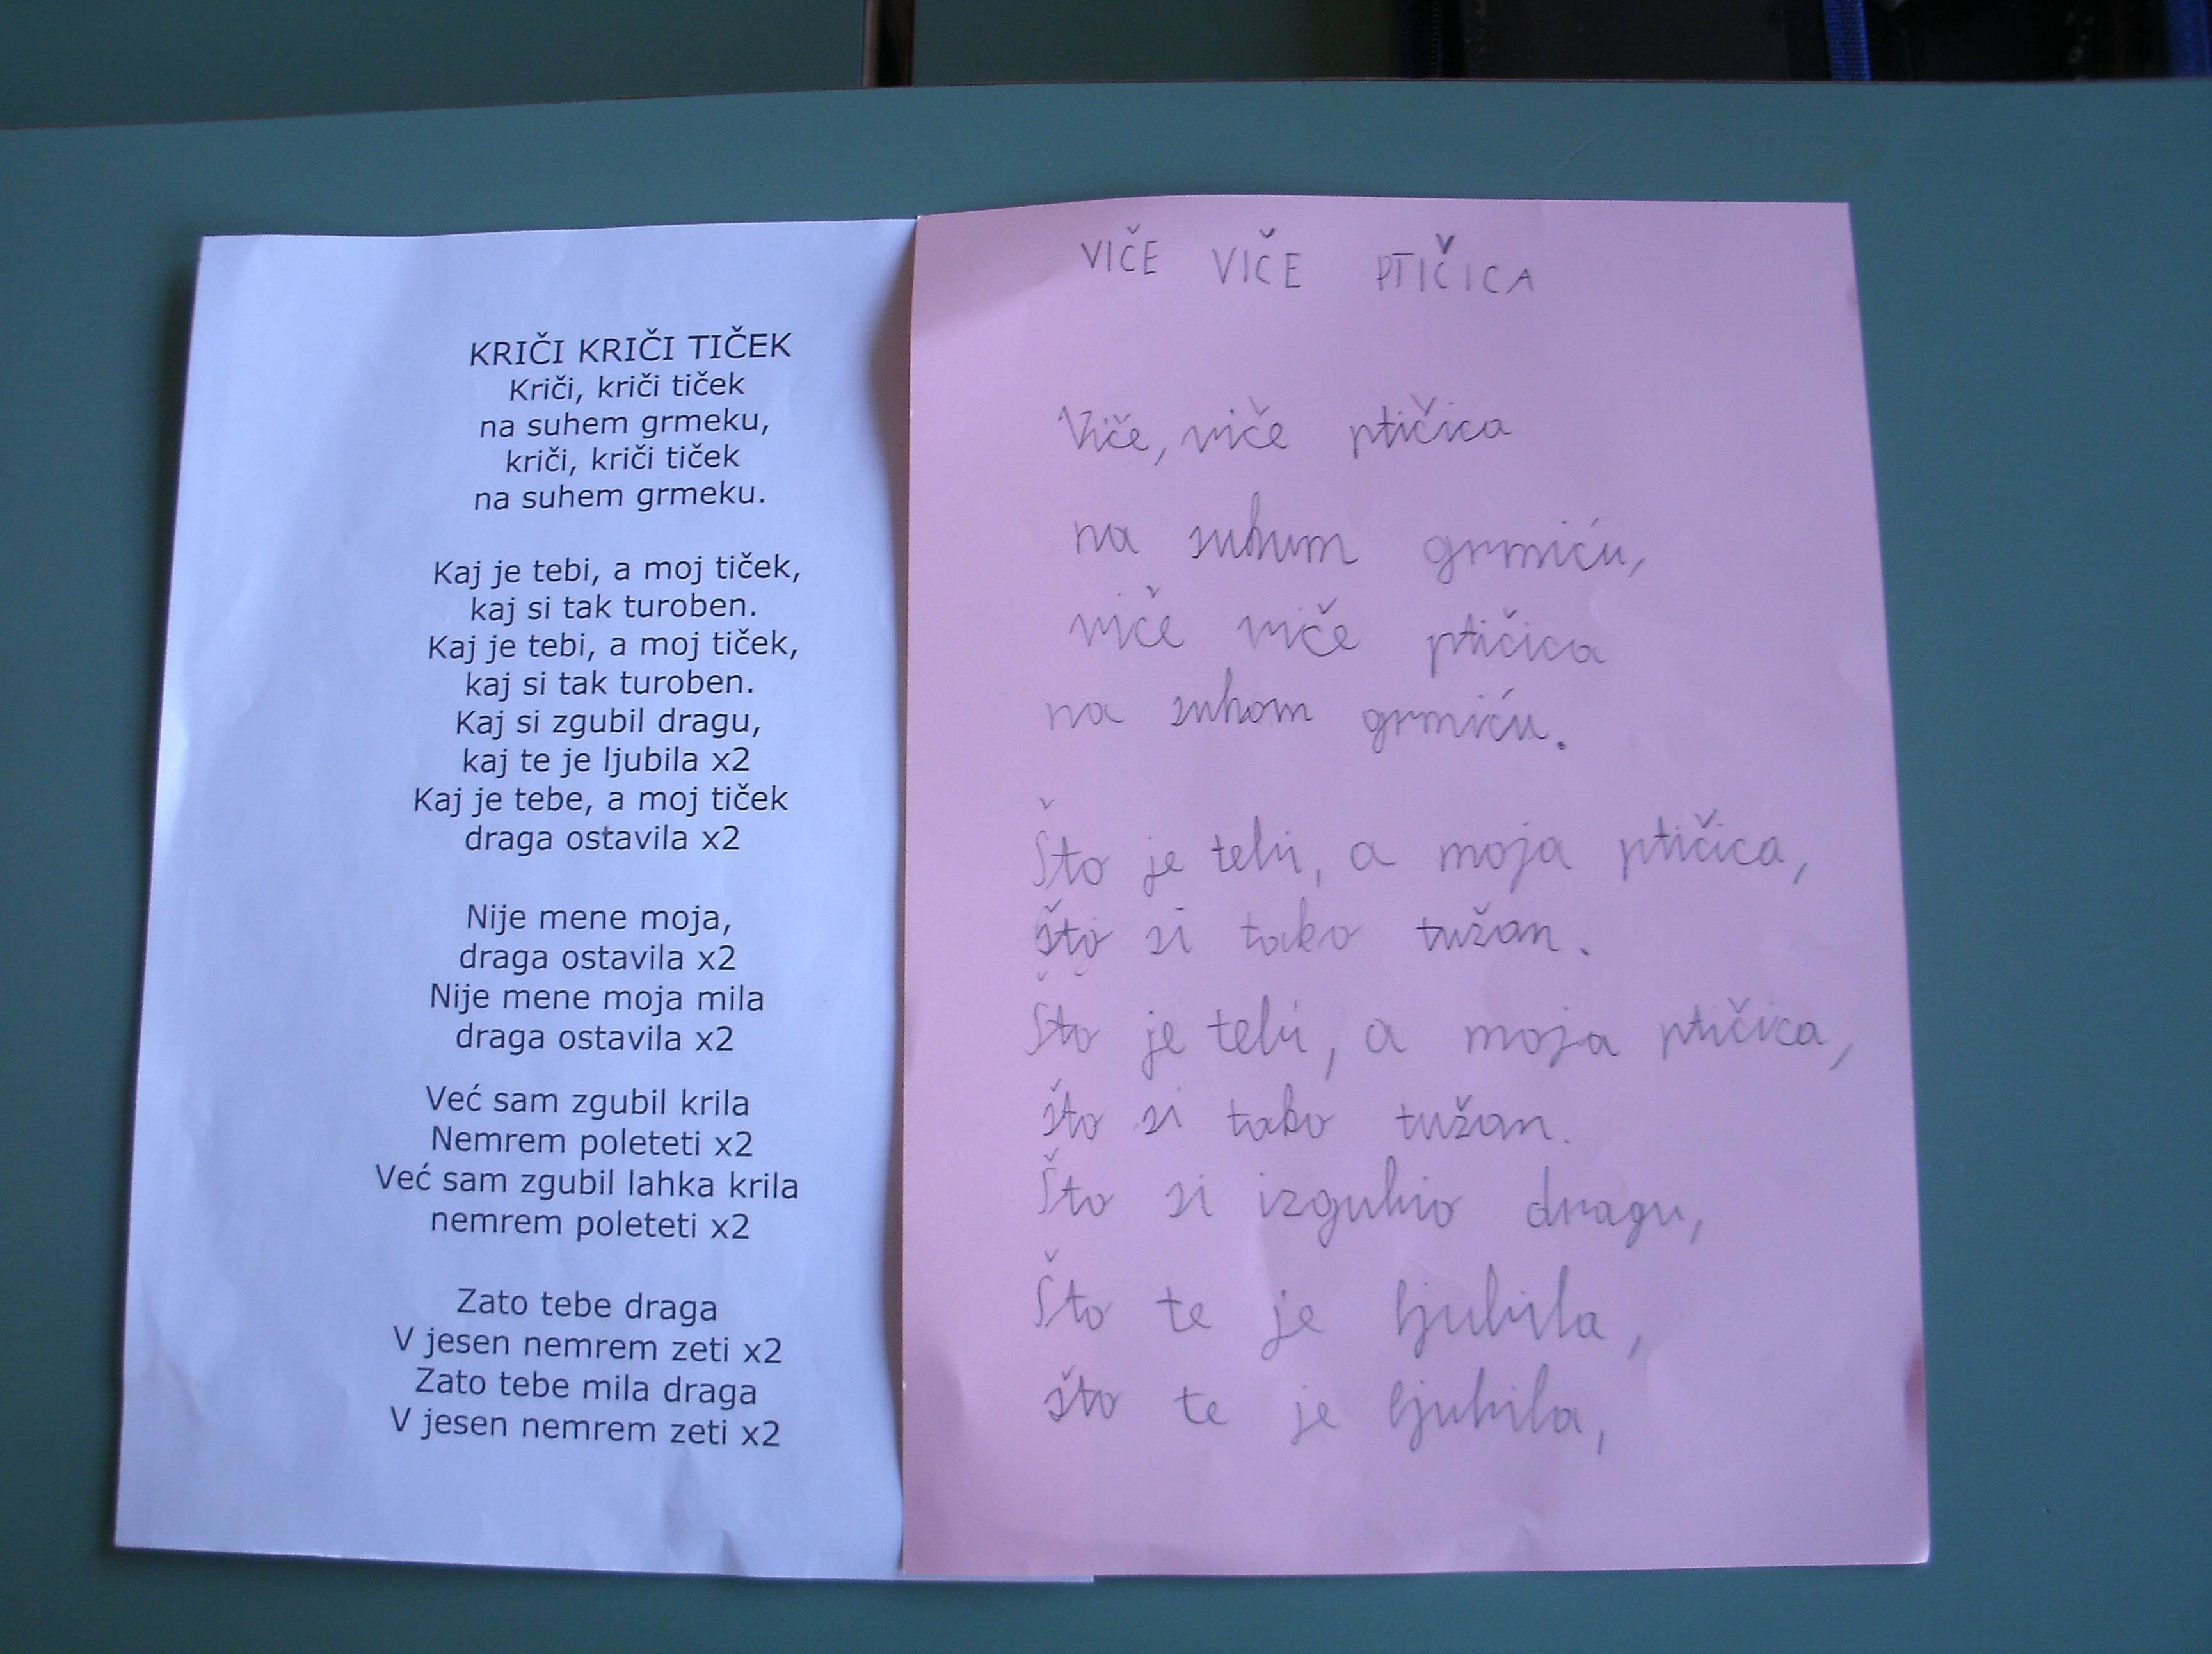 KRIČI KRIČI TIČEK
Kriči, kriči tiček
na suhem grmeku,
kriči, kriči tiček
na suhem grmeku.
Kaj je tebi, a moj tiček,
kaj si tak turoben.
Kaj je tebi, a moj tiček,
kaj si tak turoben.
Kaj si zgubil dragu,
kaj te je ljubila x2
Kaj je tebe, a moj tiček
draga ostavila x2
Nije mene moja,
draga ostavila x2
Nije mene moja mila
draga ostavila x2
Već sam zgubil krila
Nemrem poleteti x2
Već sam zgubil lahka krila
nemrem poleteti x2
Zato tebe draga
V jesen nemrem zeti x2
Zato tebe mila draga
V jesen nemrem zeti x2
VIČE VIČE PTIČICA
Viče, viče ptičica
na suhum grmiću,
viče viče ptičica
na suhom grmiću.
Što je tebi, a moja ptičica,
što si tako tužan.
Što je tebi, a moja ptičica,
što si tako tužan.
Što si izgubio dragu,
Što te je ljubila,
što te je ljubila,